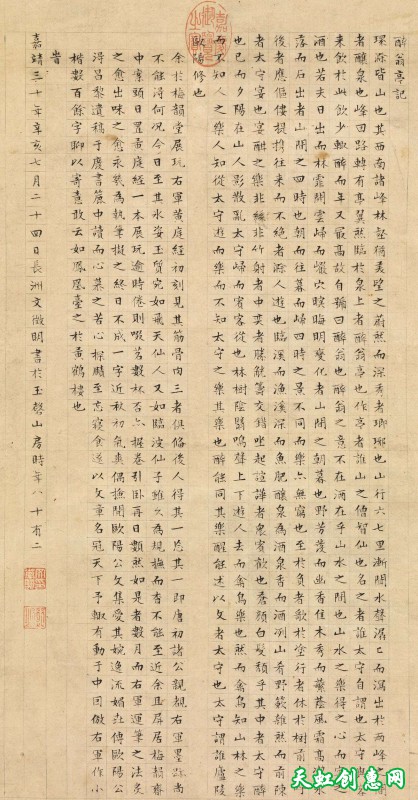 醉翁亭記
環滁皆山也其西南諸峰林壑尤美望之蔚然而深秀者瑯琊也山行六七里漸聞水聲潺〻而瀉出於兩峰間
者釀泉也峰回路轉有亭翼然臨於泉上者醉翁亭也作亭者誰山之僧智仙也名之者誰太守自謂也太守與客
來飲於此飲少輒醉而年又最高故自號曰醉翁也醉翁之意不在酒在乎山水之間也山水之樂得之心而寓之
酒也若夫日出而林霏開雲歸而巖穴暝晦明變化者山間之朝暮也野芳發而幽香佳木秀而繁陰風霜高潔水
落而石出者山間之四時也朝而往暮而歸四時之景不同而樂亦無窮也至於負者歌於塗行者休於樹前者呼
後者應傴僂提攜往來而不絕者滁人遊也臨溪而漁溪深而魚肥釀泉為酒泉香而酒冽山肴野蔌雜然而前陳
者太守宴也宴酣之樂非絲非竹射者中奕者勝觥籌交錯坐起諠譁者衆賓歡也蒼顏白髮頹乎其中者太守醉
也已而夕陽在山人影散亂太守歸而賓客從也林樹陰翳鳴聲上下遊人去而禽鳥樂也然而禽鳥知山林之樂
而不知人之樂人知從太守遊而樂而不知太守之樂其樂也醉能同其樂醒能述以文者太守也太守謂誰廬陵
歐陽脩也
余於梅韻堂展玩右軍黃庭經初刻見其筋骨肉三者俱備後人得其一忘其一即唐初諸公親覩右軍墨蹟尚
不能得何況今日至其水姿玉質宛如飛天仙人又如臨波仙子雖久為規橅而杳不能至近余且屏居梅韻齋
中案頭日置黃庭經一本展玩逾時倦則啜茗數杯否則握卷引臥再日翫然如是者數月而右軍運筆之法炙
之愈出味之愈永苐為執筆擬之終日不成一字近秋初氣爽偶撿歐陽公文集愛其婉逸流媚世傳歐陽公
得昌黎遺稿于廢書簏中讀而心慕之苦心探賾至忘寢食遂以文章名冠天下予輒有動于中因倣右軍作小
楷數百餘字聊以寄意敢云如鳳凰臺之於黃鶴樓也
旹
嘉靖三十年辛亥七月二十四日長洲文徵明書於玉磬山房時年八十有二
天虹创意网